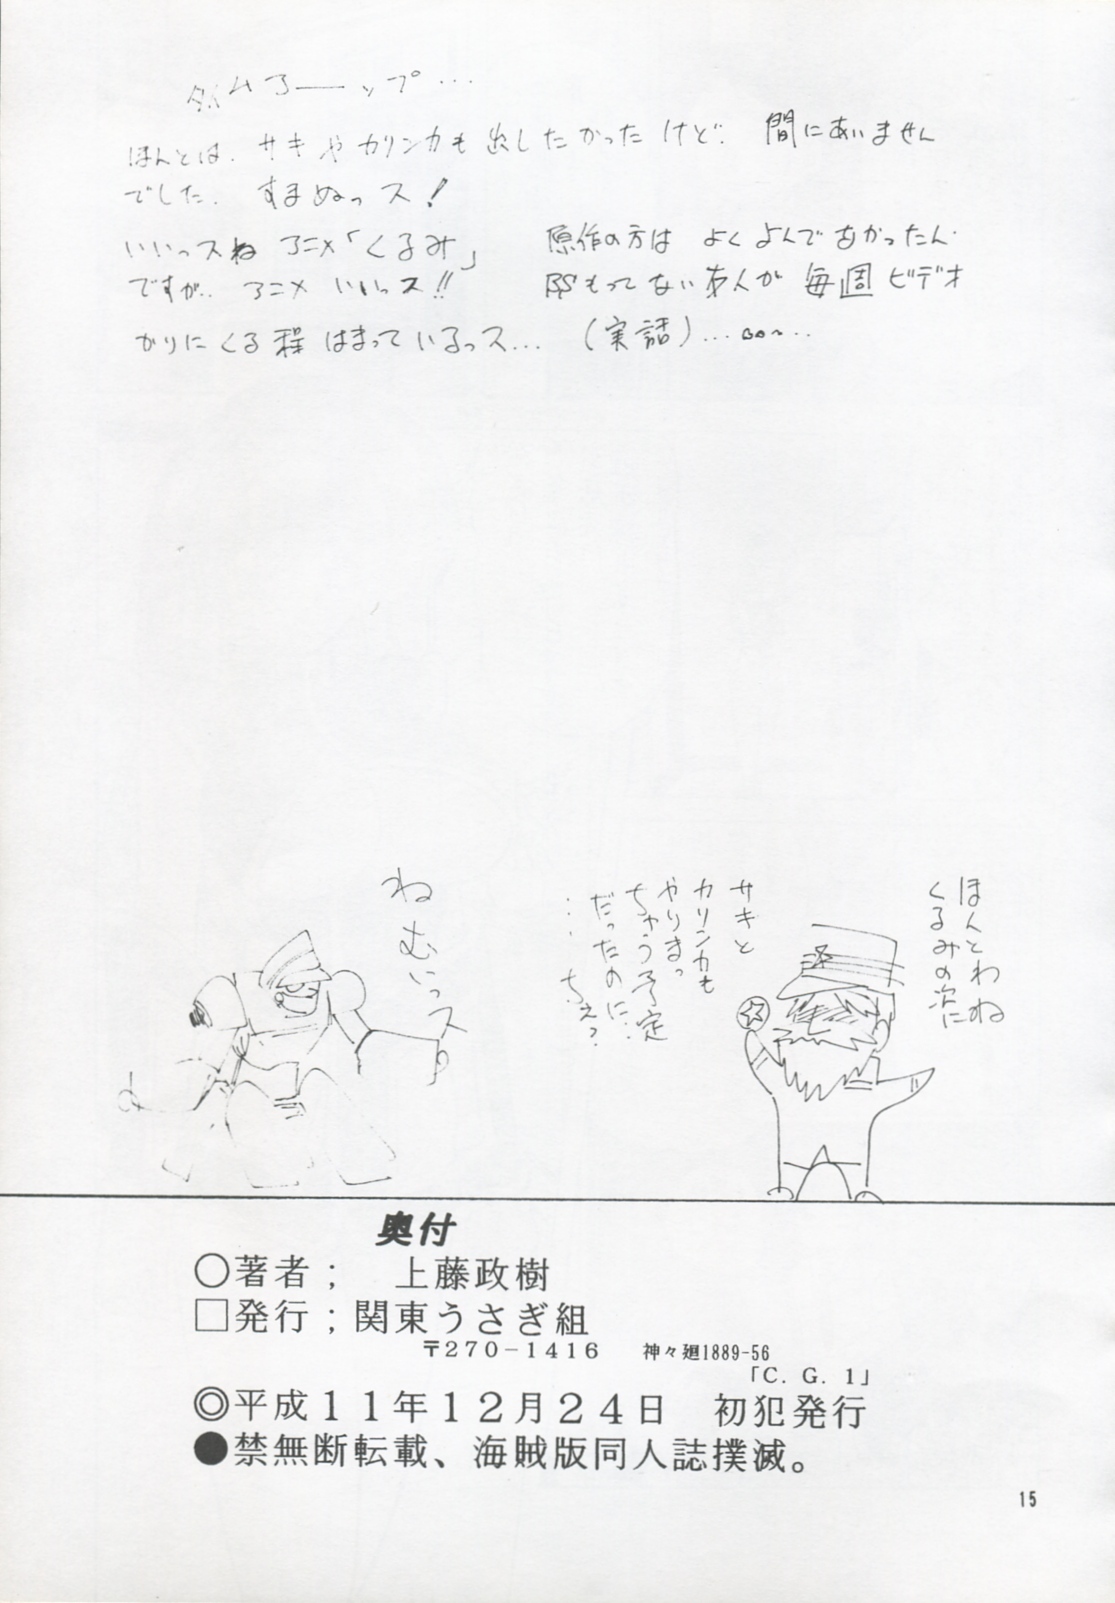 タイムアーップ…
ほんとは、サキやカリンカも出したかったけど、間にあいません
でした、すまぬっス!
いいっスね アニメ「くるみ」 原作の方は よくよんでなかったん
ですが、アニメ いいっス!! BSもってない友人が 毎週ビデオ
かりにくる程 はまっているっス…(実話)…
ねむいっス
ほんとわね
くるみの次に
サキと
カリンカも
やりまっ
ちゃう予定
だったのに…
…ちぇっ
奥付
○著者; 上藤政樹
□発行;関東うさぎ組
〒270-1416 神々廻1889-56
「C.G.1」
◎平成11年12月24日 初犯発行
●禁無断転載、海賊版同人誌撲滅。
15